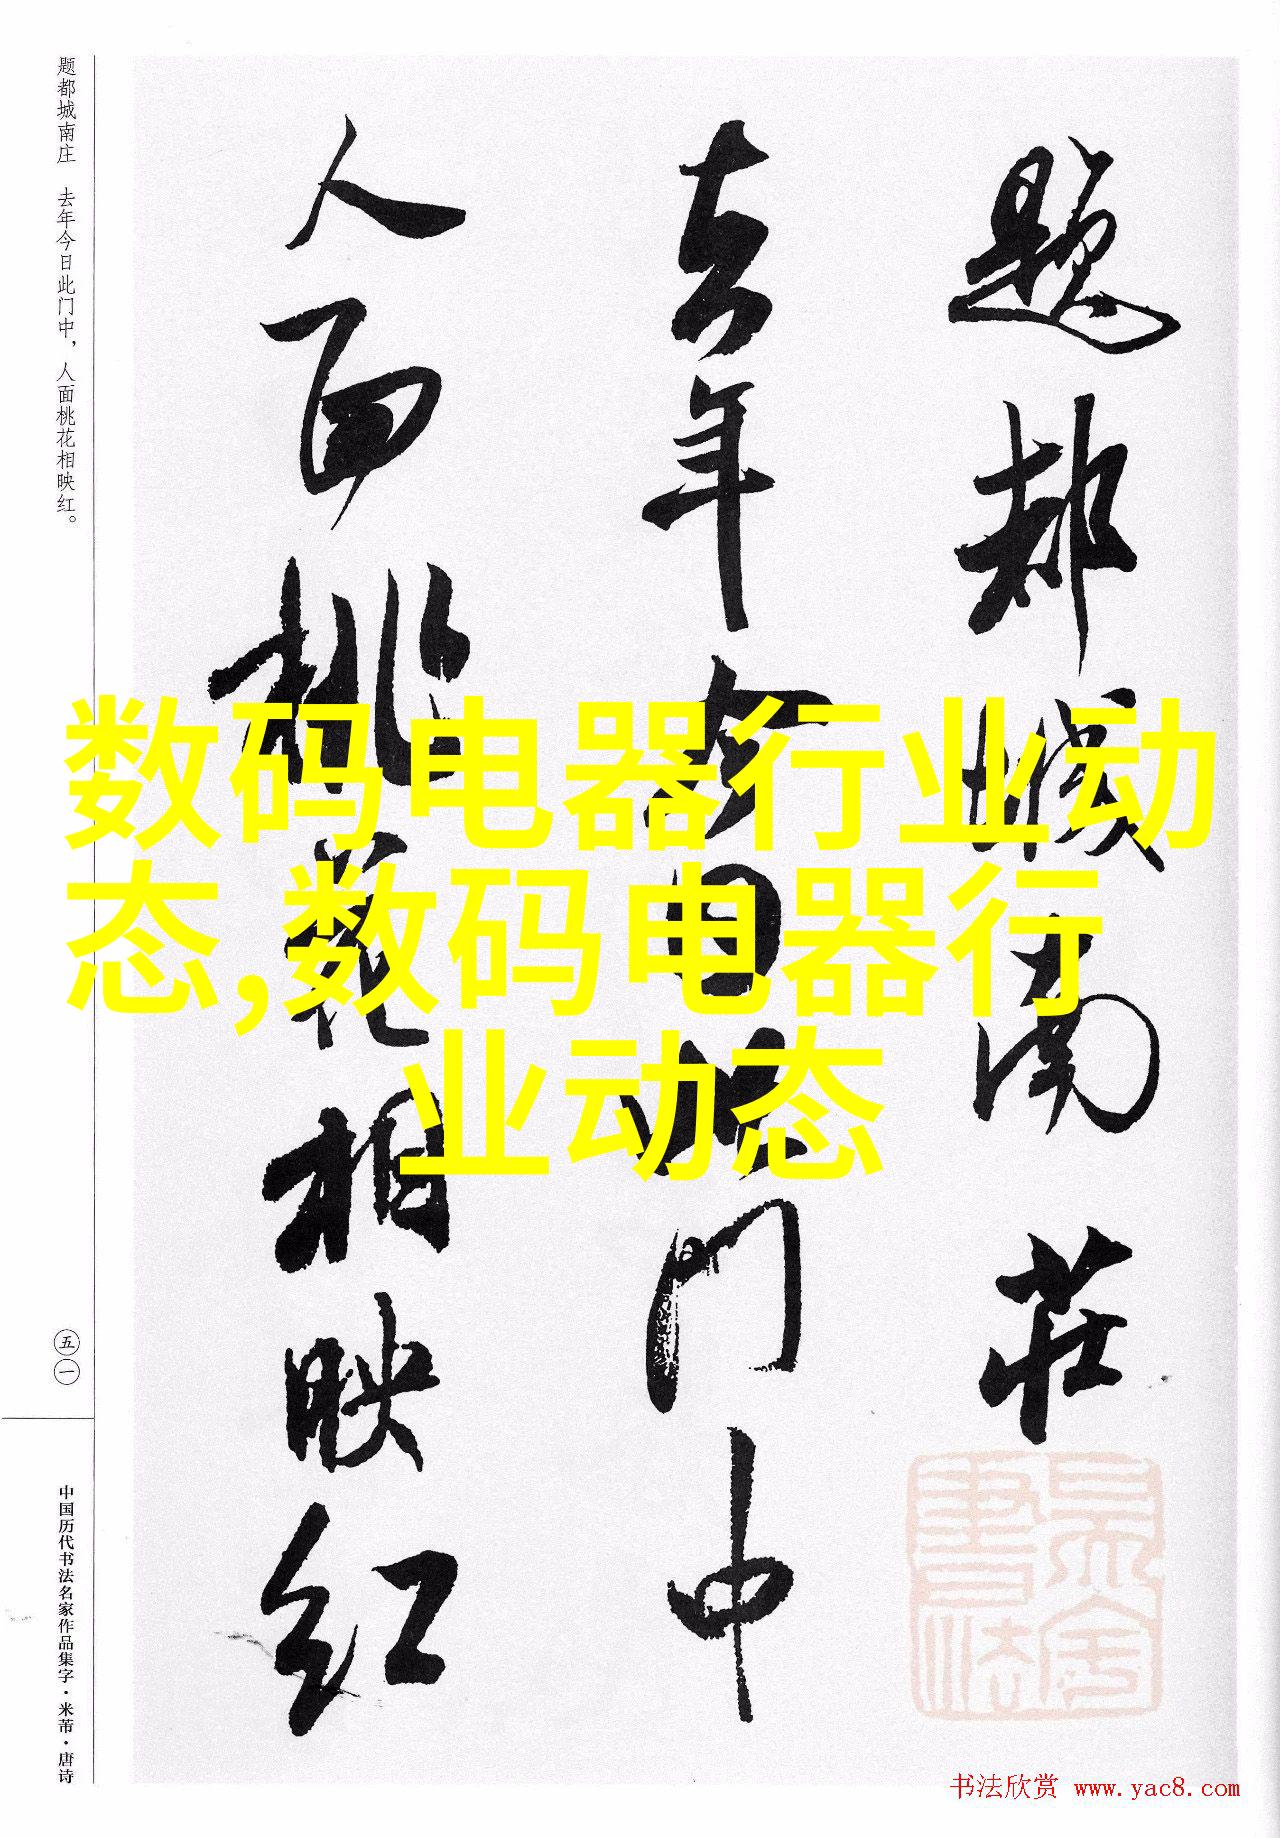 题都城南庄 去年今日此门中，人面桃花相映红。
五一
中国历代书法名家作品集字·米芾·唐诗
题都城南莊
去年今日此门中
人面桃花相映红
数码电器行业动
态,数码电器行
业动态
書法
书法欣赏 www.yac8.com